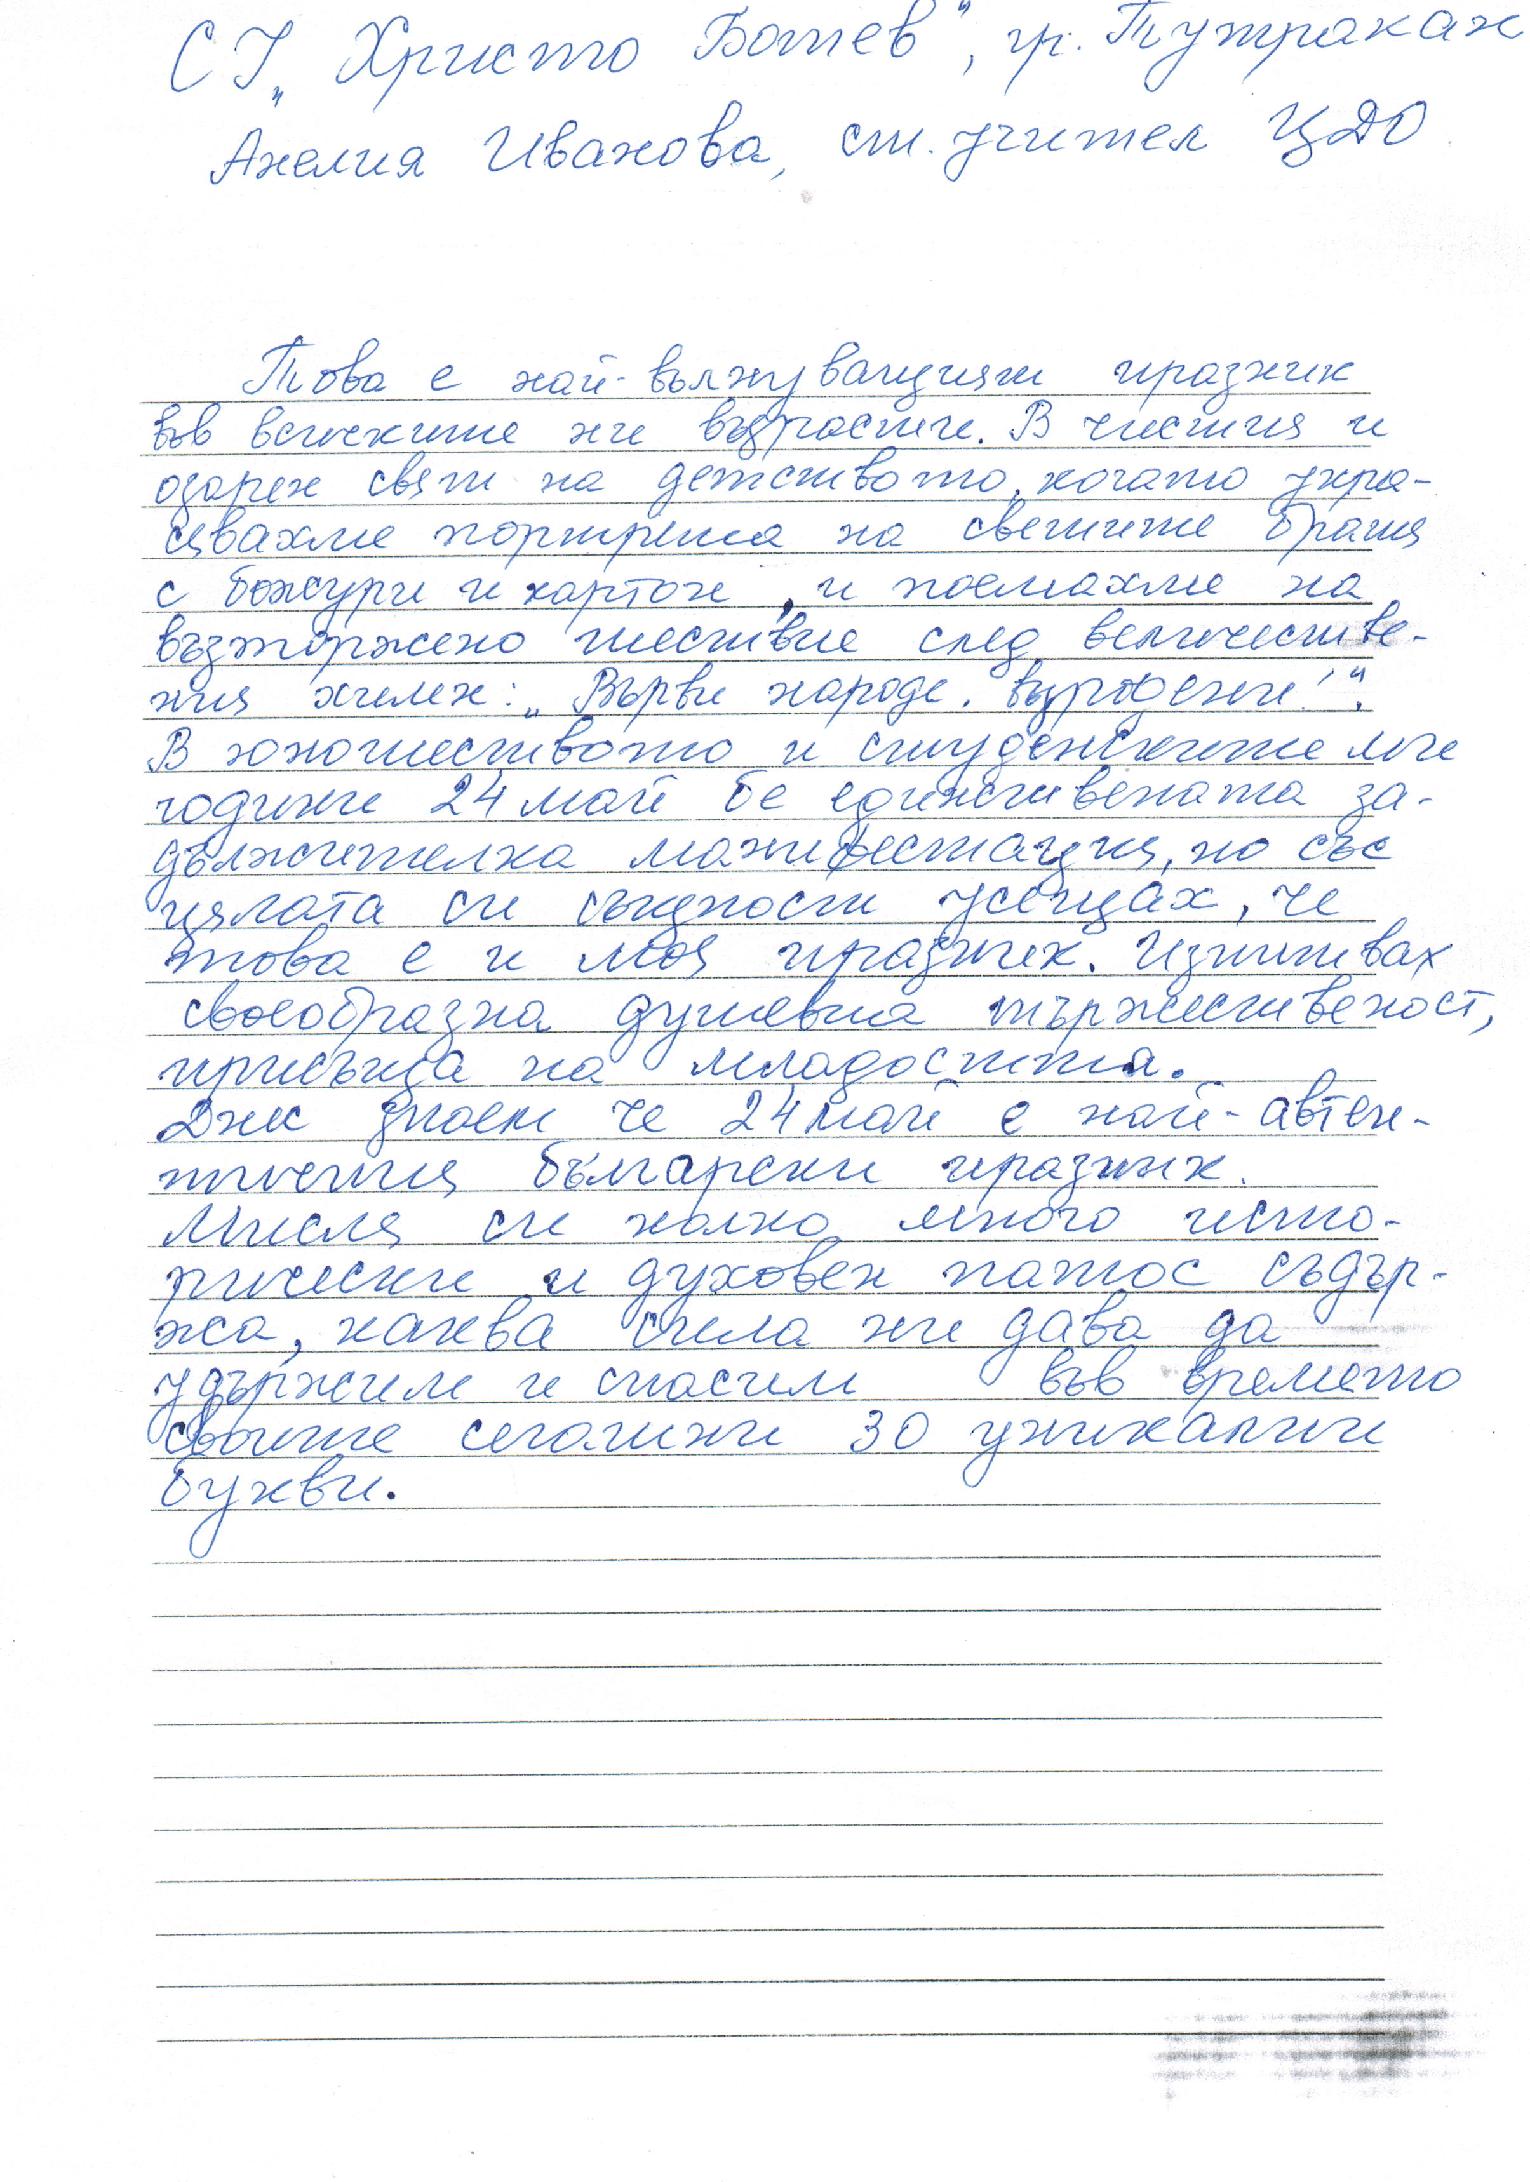 СУ „Христо Ботев", гр. Тутракан
Анелия Иванова, ст. учител ЦДО
Това е най-вълнуващият празник
във всичките ни възрасти. В чистия и
озарен свят на детството, когато укра-
сявахме портрета на светите братя
с божури и картон, и поемахме на
възторжено шествие след величестве-
ния химн: „Върви народе, възродени!".
В юношеството и студентските ми
години 24 май бе единствената за-
дължителна манифестация, но със
цялата си същност усещах, че
това е и моя празник. Изпитвах
своеобразна душевна тържественост,
присъща на младостта.
Днес знаем че 24 май е най-автен-
тичния български празник.
Мисля си колко много исто-
рически и духовен патос съдър-
жа, каква сила ни дава да
удържим и спасим във времето
своите сегашни 30 уникални
букви.